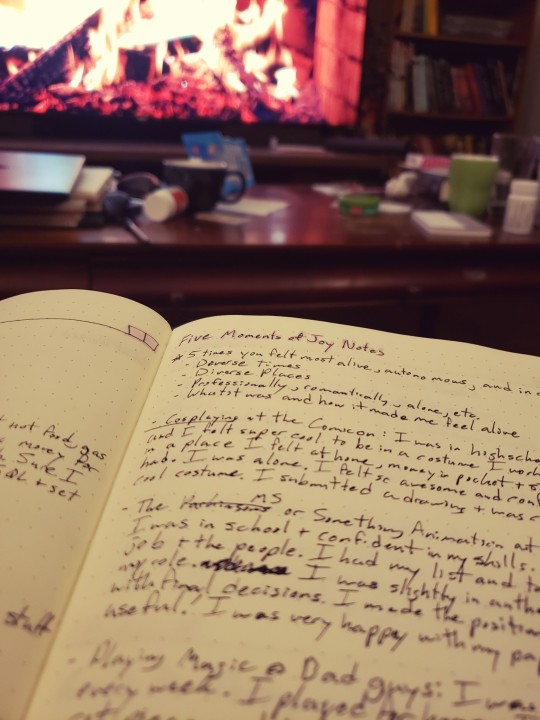 not food, gas
money for
Sure I
+ set
stuff
Five Moments of Joy Notes
* 5 times you felt most alive, autonomous, and in
- Deverse Times
- Diverse Places
- Professionally, romantically, alone, etc.
- What it was and how it made me feel alone
- Cosplaying at the Comicon: I was in highscho
and I felt super cool to be in a costume I work
in a place I felt at home, money in pocket +
had. I was alone. I felt so awesome and conf
cool costume. I submitted a drawing + was c
- The MS or Something Animation at
I was in school + confident in my skills.
job + the people. I had my list and
my role. I was slightly in auth
with final decisions. I made the position
useful. I was very happy with my
- Playing Magic @ Dad guys: I was
every week. I played